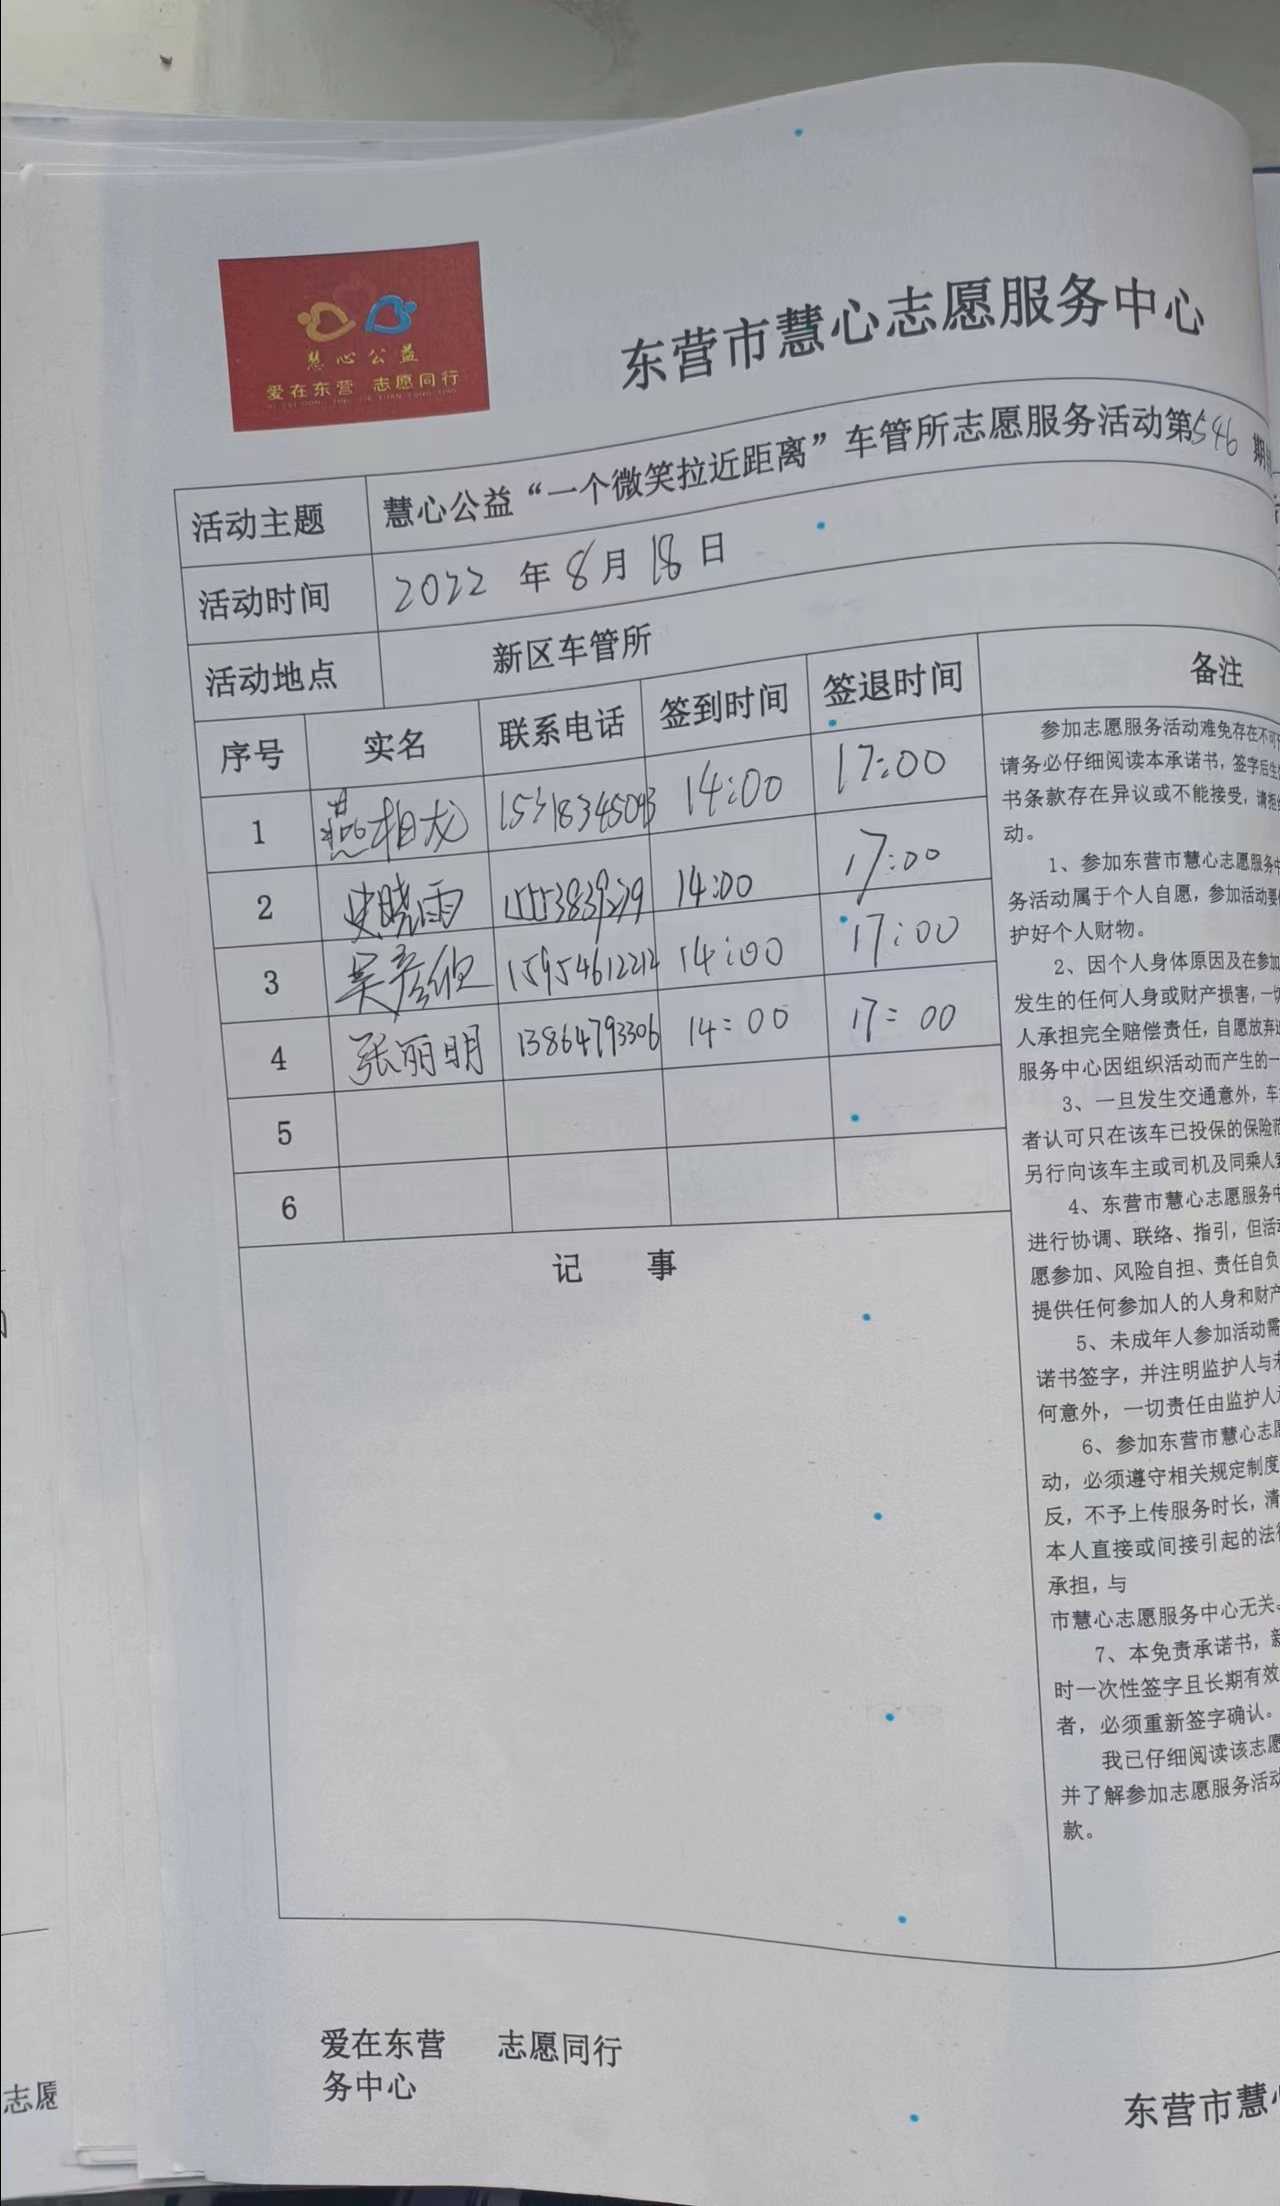 慧心公益
爱在东营 志愿同行
东营市慧心志愿服务中心
活动主题 慧心公益“一个微笑拉近距离”车管所志愿服务活动第546期
活动时间 2022 年 8 月 18 日
活动地点 新区车管所
序号 实名 联系电话 签到时间 签退时间 备注
1 燕相龙 14:00 17:00
2 史晓雨 14:00 17:00
3 吴彦欣 15954612212 14:00 17:00
4 张丽明 13864793306 14:00 17:00
5
6
记 事
参加志愿服务活动难免存在不可
请务必仔细阅读本承诺书，签字后生
书条款存在异议或不能接受，请拒
动。
1、参加东营市慧心志愿服务中
务活动属于个人自愿，参加活动要
护好个人财物。
2、因个人身体原因及在参加
发生的任何人身或财产损害，一切
人承担完全赔偿责任，自愿放弃
服务中心因组织活动而产生的一
3、一旦发生交通意外，车
者认可只在该车已投保的保险范
另行向该车主或司机及同乘人
4、东营市慧心志愿服务中
进行协调、联络、指引，但活动
愿参加、风险自担、责任自负
提供任何参加人的人身和财产
5、未成年人参加活动需
诺书签字，并注明监护人与未
何意外，一切责任由监护人
6、参加东营市慧心志愿
动，必须遵守相关规定制度
反，不予上传服务时长，清
本人直接或间接引起的法律
承担，与
市慧心志愿服务中心无关。
7、本免责承诺书，新
时一次性签字且长期有效
者，必须重新签字确认。
我已仔细阅读该志愿
并了解参加志愿服务活动
款。
爱在东营 志愿同行
务中心
东营市慧心
志愿